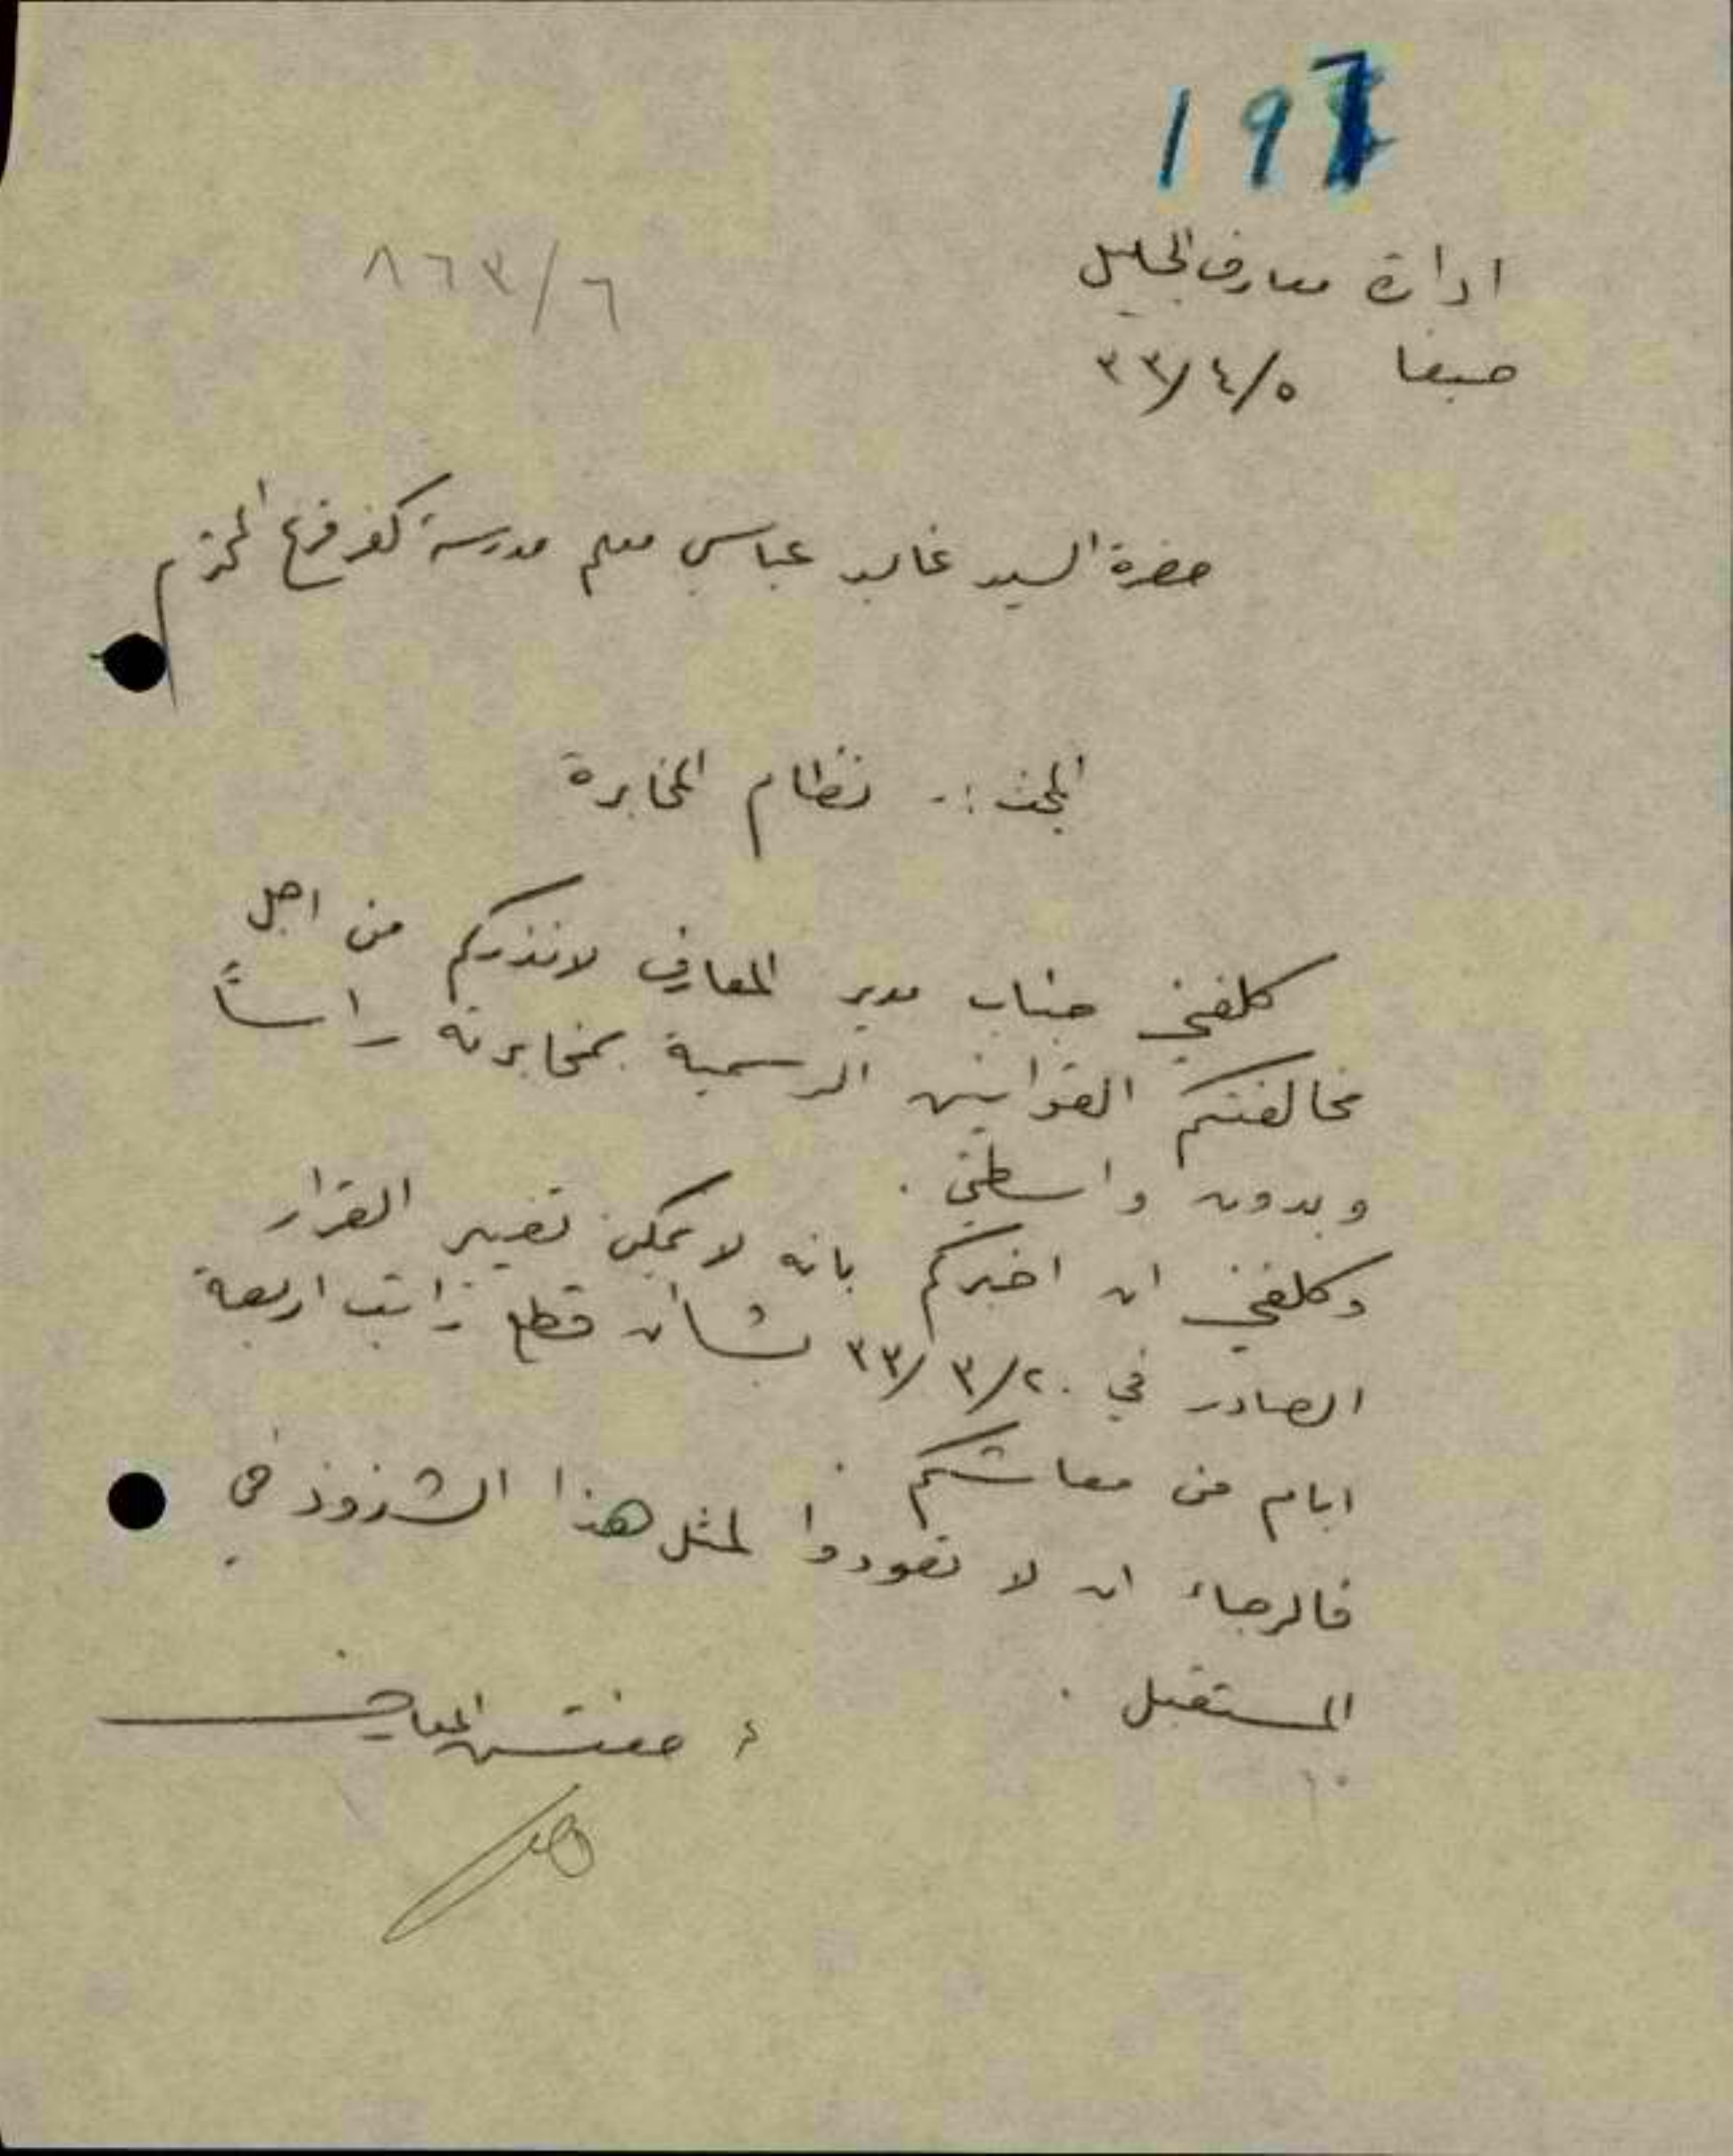 197
ادارة معارف الجليل
٨٦٣/٦
صفا ٣٣/٤/٥
حضرة السيد غالب عباسي معلم مدرسة كفر المحترم
البحث :- نظام المخابرة
كلفني جناب مدير المعارف لانذركم من اجل
مخالفتكم القوانين الرسمية بمخابرته راساً
وبدون واسطتي .
وكلفني ان اخبركم بانه لا يمكن تغيير القرار
الصادر في ٣٣/٣/٢٠ بشأن قطع راتب اربعة
ايام من معاشكم .
فالرجاء ان لا تعودوا لمثل هذا الشذوذ في
المستقبل .
مفتش المعارف